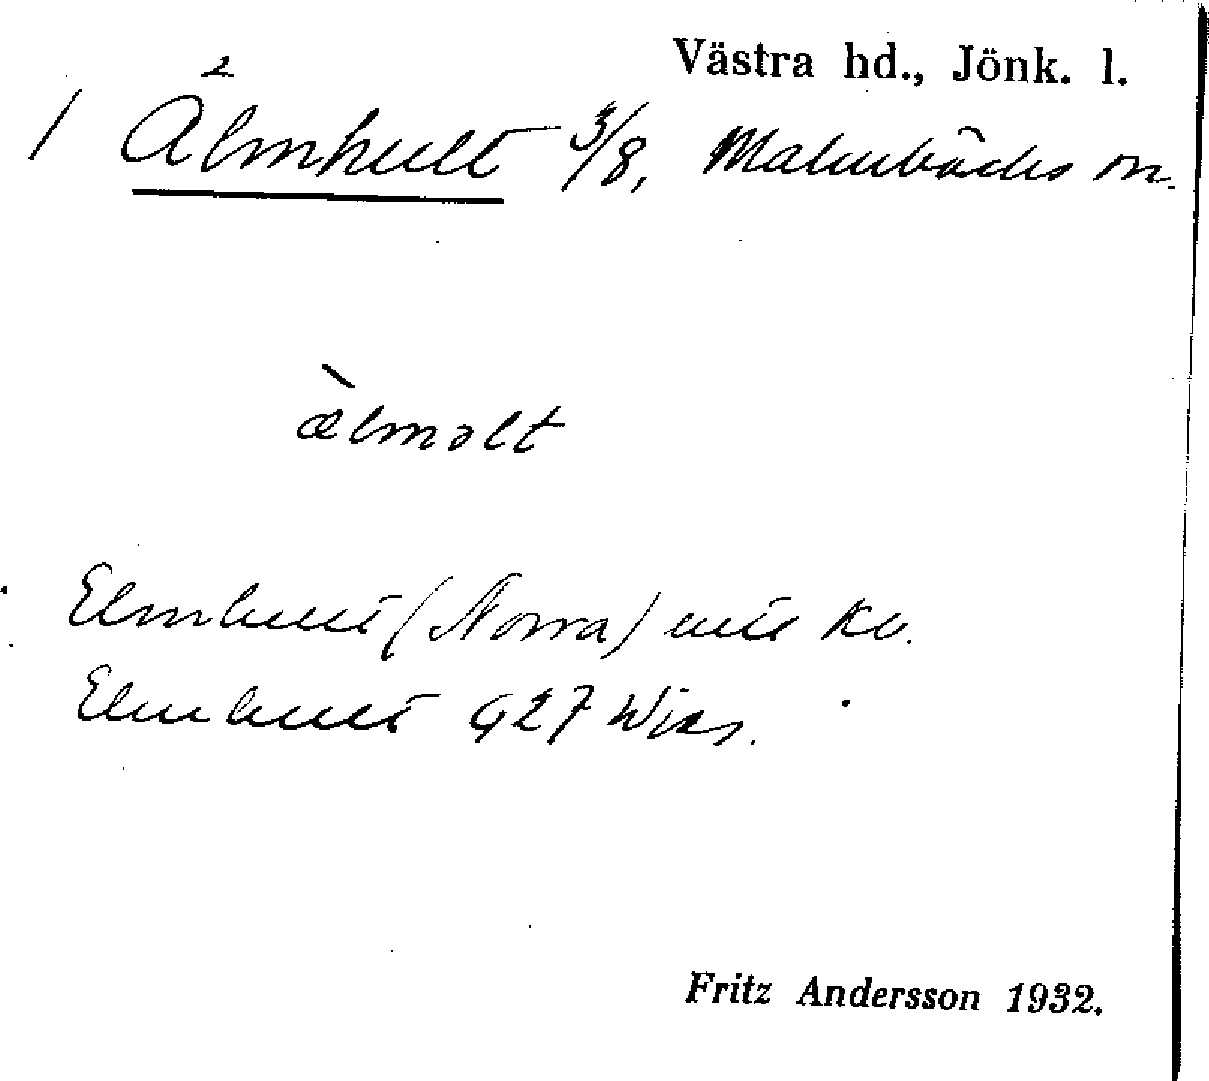 Västra hd., Jönk. l.
1 Älmhult 3/8, Malmbäcks sn.
älmolt
Elmhult (Norra) utis Ku.
Elmhult G27 Wirs.
Fritz Andersson 1932.